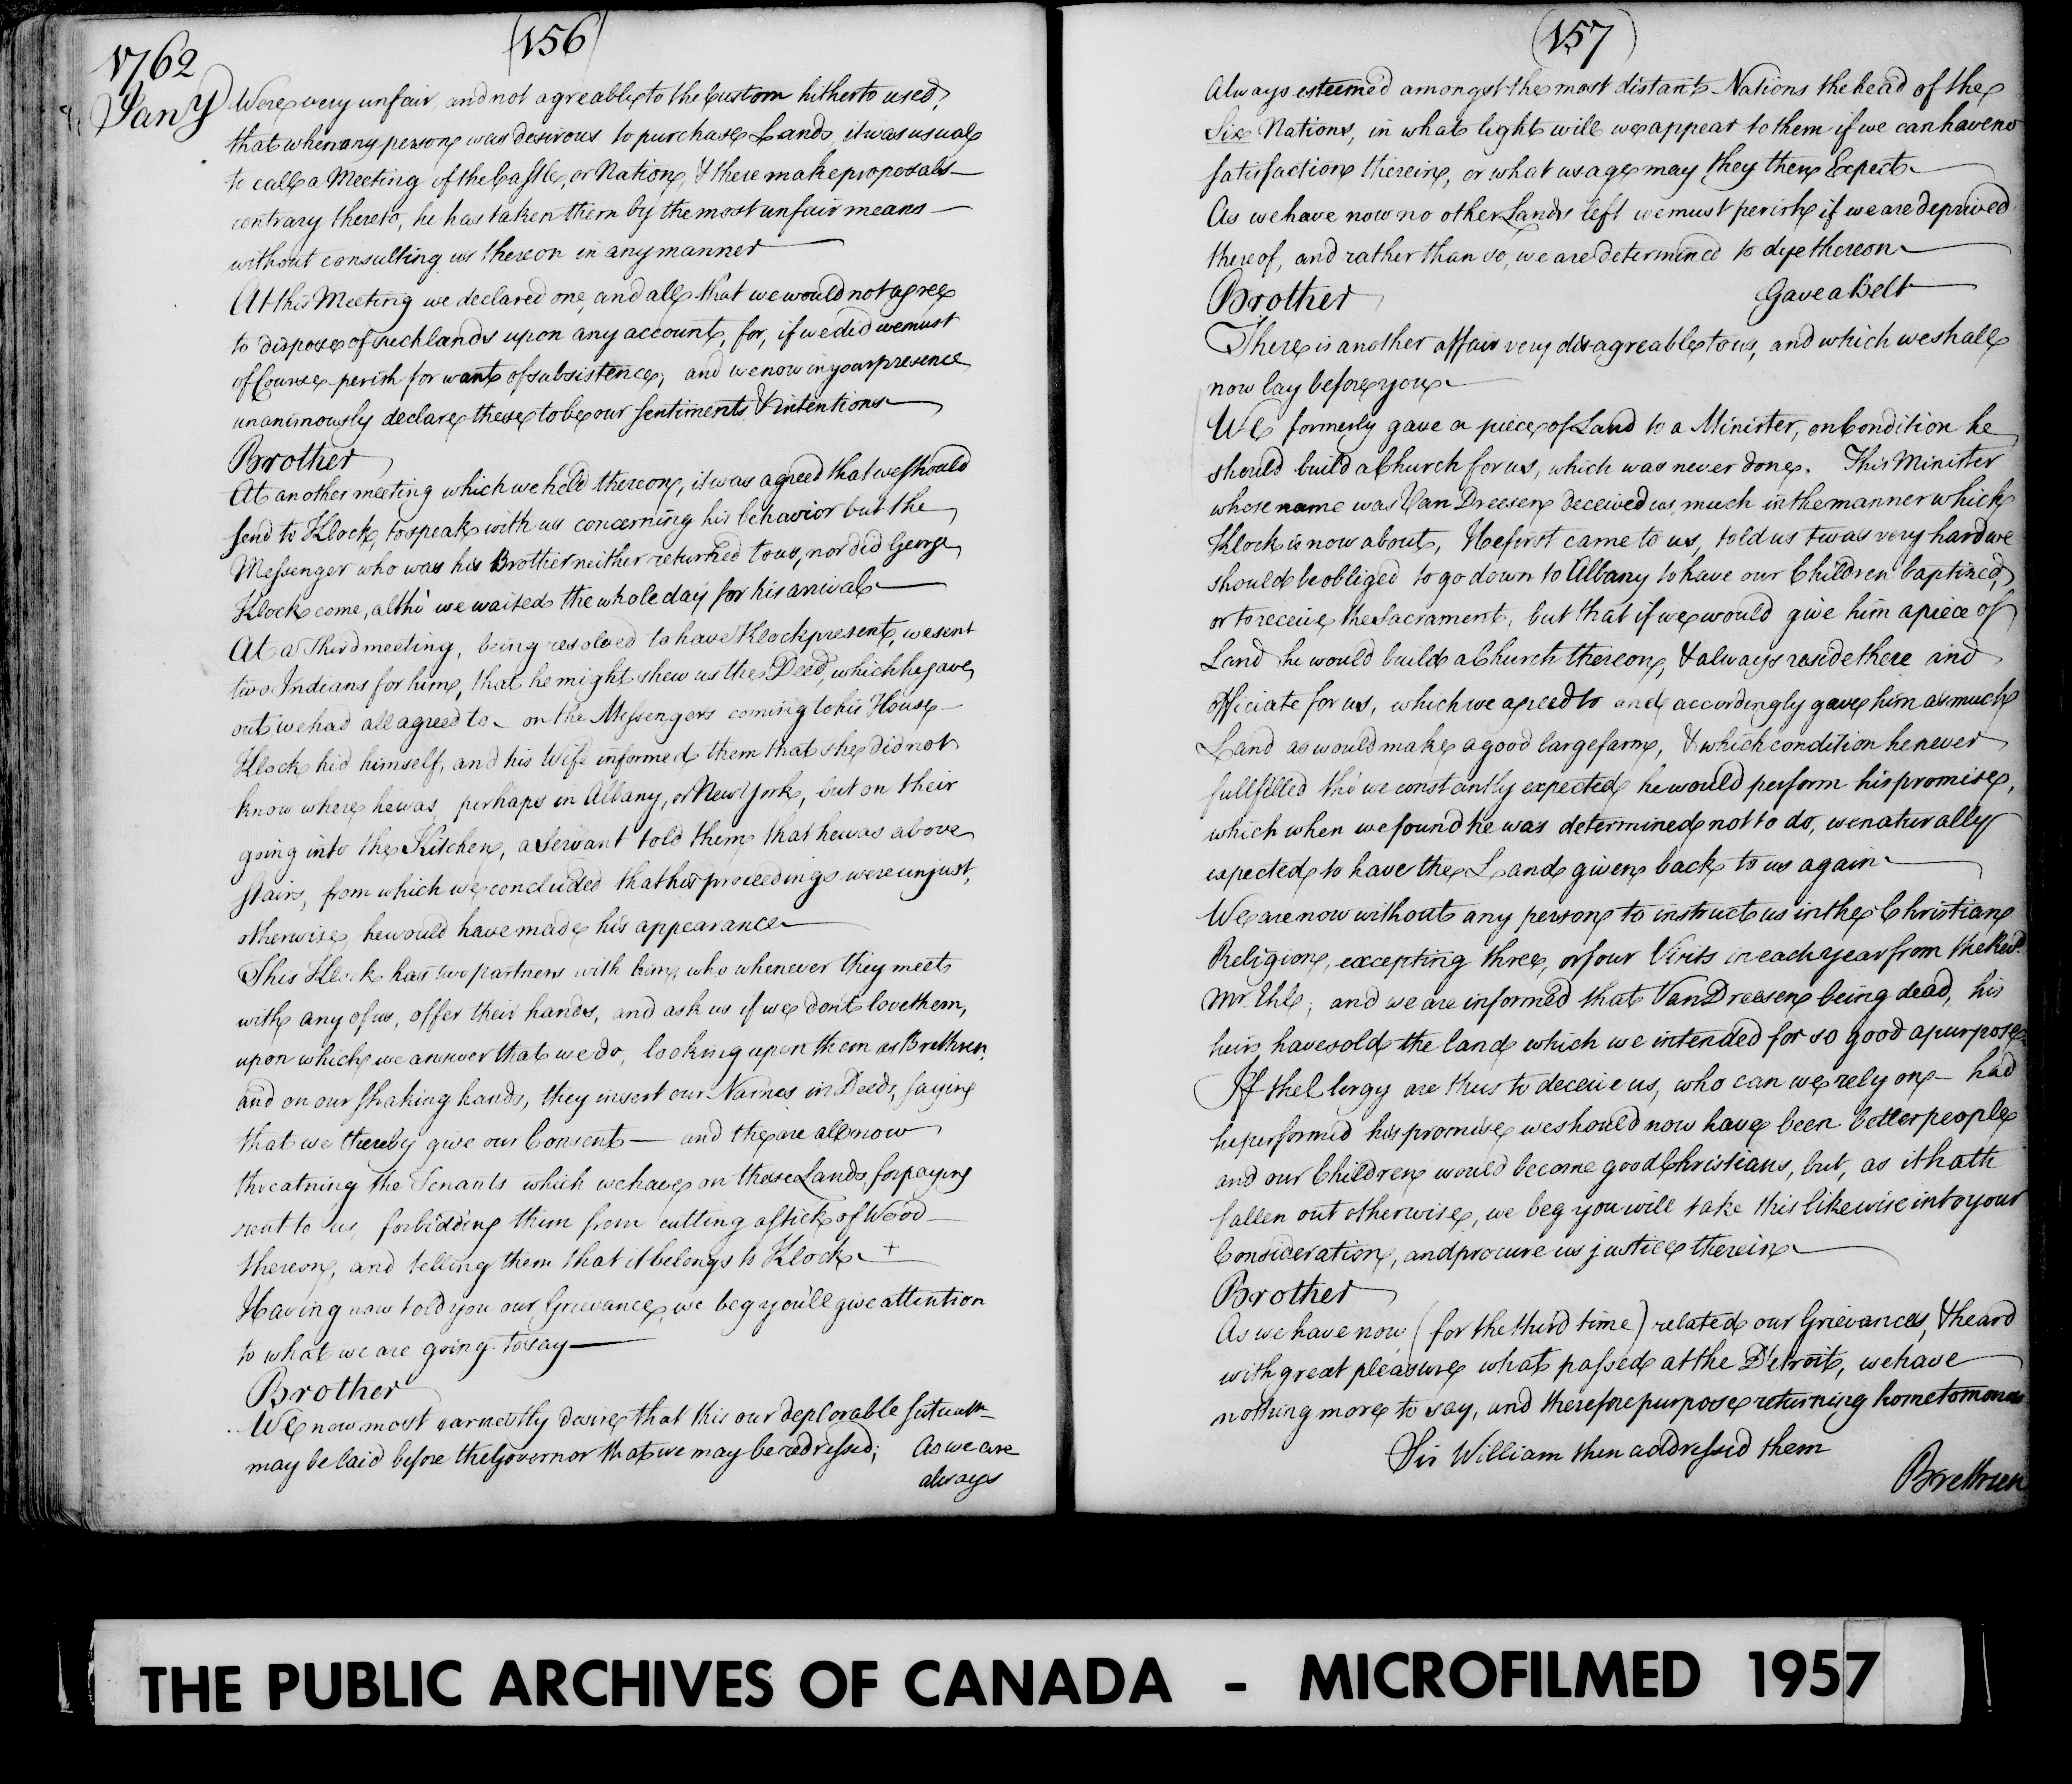 (156)
1762
Jany
Were very unfair and not agreable to the Custom hitherto used,
that when any person was desirous to purchase Lands it was usual
to call a Meeting of the Castle, or Nation, & there make proposals —
contrary thereto, he has taken them by the most unfair means —
without consulting us thereon in any manner —
At this Meeting we declared one, and all, that we would not agree
to dispose of such lands upon any account, for, if we did we must
of Course perish for want of subsistence, and we now in your presence
unanimously declare these to be our Sentiments & intentions —
Brother
At another meeting which we held thereon, it was agreed that we should
send to Klock, to speak with us concerning his behavior but the
Messenger who was his Brother neither returned to us, nor did George
Klock come, altho' we waited the whole day for his arrival —
At a Third meeting, being resolved to have Klock present, we sent
two Indians for him, that he might shew us the Deed, which he gave
out we had all agreed to — on the Messengers coming to his House —
Klock hid himself, and his Wife informed them that she did not
know where he was, perhaps in Albany, or New York, but on their
going into the Kitchen, a Servant told them that he was above
stairs, from which we concluded that his proceedings were unjust,
otherwise he would have made his appearance —
This Klock has two partners with him, who whenever they meet
with any of us, offer their hands, and ask us if we don't love them,
upon which we answer that we do, looking upon them as Brethren,
and on our shaking hands, they insert our Names in Deeds, saying
that we thereby give our Consent — and they are all now
threatning the Tenants which we have on these Lands, for paying
rent to us, forbidding them from cutting a stick of Wood —
thereon, and telling them that it belongs to Klock — +
Having now told you our Grievance, we beg you'll give attention
to what we are going to say —
Brother
We now most earnestly desire that this our deplorable Situatn
may be laid before the Governor that we may be redressed; As we are
always
(157)
Always esteemed amongst the most distant Nations the head of the
Six Nations, in what light will we appear to them if we can have no
satisfaction therein, or what usage may they then Expect —
As we have now no other Lands left we must perish if we are deprived
thereof, and rather than so, we are determined to dye thereon —
Brother Gave a Belt —
There is another affair very disagreable to us, and which we shall
now lay before you —
We formerly gave a piece of Land to a Minister, on Condition he
should build a Church for us, which was never done. This Minister
whose name was Van Dreesen deceived us, much in the manner which
Klock is now about, He first came to us, told us twas very hard we
should be obliged to go down to Albany to have our Children baptized,
or to receive the Sacrament, but that if we would give him a piece of
Land he would build a Church thereon, & always reside there and
officiate for us, which we agreed to and accordingly gave him as much
Land as would make a good large farm, & which condition he never
fullfilled tho' we constantly expected he would perform his promise,
which when we found he was determined not to do, we naturally
expected to have the Land given back to us again —
We are now without any person to instruct us in the Christian
Religion, excepting three, or four Visits in each year from the Revd.
Mr. Ehl; and we are informed that Van Dreesen being dead, his
heirs have sold the land which we intended for so good a purpose
If the Clergy are thus to deceive us, who can we rely on — had
he performed his promise we should now have been better people
and our Children would become good Christians, but, as it hath
fallen out otherwise, we beg you will take this likewise into your
Consideration, and procure us justice therein —
Brother
As we have now (for the third time) related our Grievances, & heard
with great pleasure what passed at the D'etroit, we have
nothing more to say, and therefore purpose returning home tomorrow
Sir William then addressed them
Brethren
THE PUBLIC ARCHIVES OF CANADA - MICROFILMED 1957